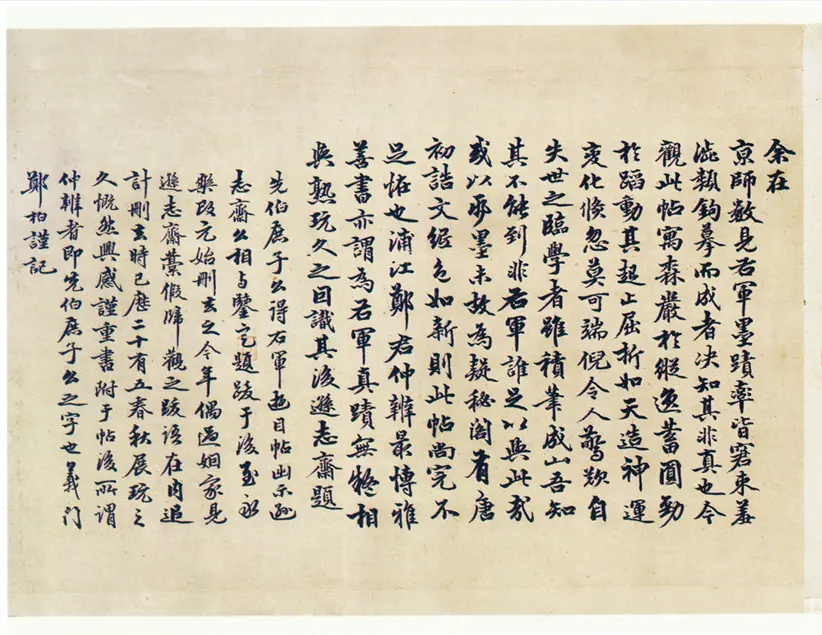 余在
京師數見右軍墨蹟率皆窘束羞
澁類鉤摹而成者决知其非真也今
觀此帖寓森嚴於縱逸蓄圓勁
於蹈動其起止屈折如天造神運
變化倏忽莫可端倪令人驚歎自
失世之臨學者雖積筆成山吾知
其不能到非右軍誰足以與此哉
或以帋墨未故為疑秘閣有唐
初誥文紙色如新則此帖尚完不
足恠也浦江鄭君仲辨最博雅
善書亦謂為右軍真蹟無疑相
與熟玩久之因識其後遜志齋題
先伯庶子公得右軍遊目帖出示遜
志齋公相与鑒定題跋于後至永
樂改元始刪去之今年偶過姻家見
遜志齋藁假歸觀之跋語在内追
計刪去時已歷二十有五春秋展玩之
久慨然興感謹重書附于帖後所謂
仲辨者即先伯庶子公之字也義門
鄭柏謹記